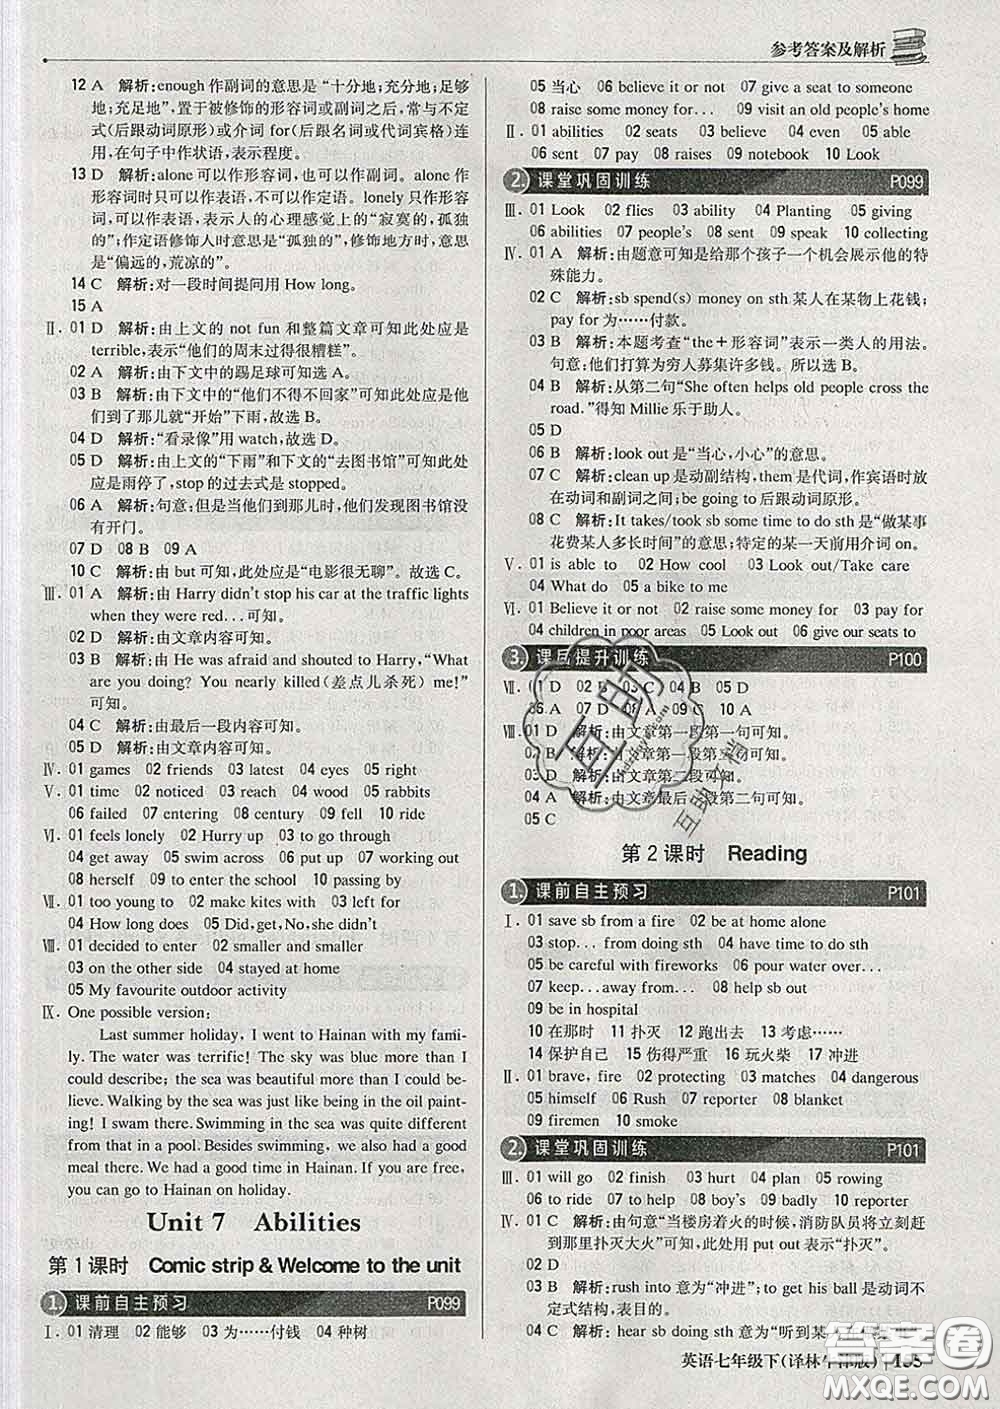 参考答案及解析
12 A 解析:enough 作副词的意思是“十分地;充分地;足够
地;充足地”,置于被修饰的形容词或副词之后,常与不定
式(后跟动词原形)或介词 for(后跟名词或代词宾格)连
用,在句子中作状语,表示程度。
13 D 解析:alone 可以作形容词,也可以作副词。alone 作
形容词时只可以作表语,不可以作定语。lonely 只作形容
词,可以作表语,表示人的心理感觉上的“寂寞的,孤独
的”;作定语修饰人时意思是“孤独的”,修饰地方时,意思
是“偏远的,荒凉的”。
14 C 解析:对一段时间提问用 How long。
15 A
Ⅱ. 01 D 解析:由上文的 not fun 和整篇文章可知此处应是
terrible,表示“他们的周末过得很糟糕”。
02 A 解析:由下文中的踢足球可知选 A。
03 B 解析:由下文中的“他们不得不回家”可知此处应是他
们到了那儿就“开始”下雨,故选 B。
04 D 解析:“看录像”用 watch,故选 D。
05 D 解析:由上文的“下雨”和下文的“去图书馆”可知此处
应是雨停了,stop 的过去式是 stopped。
06 A 解析:句意:但是当他们到那儿时,他们发现图书馆没
有开门。
07 D 08 B 09 A
10 C 解析:由 but 可知,此处应是“电影很无聊”。故选 C。
Ⅲ. 01 A 解析:由 Harry didn't stop his car at the traffic lights
when they were red...可知。
02 D 解析:由文章内容可知。
03 B 解析:由 He was afraid and shouted to Harry,“What
are you doing? You nearly killed(差点儿杀死) me!”
可知。
04 C 解析:由最后一段内容可知。
05 D 解析:由文章内容可知。
Ⅳ. 01 games 02 friends 03 latest 04 eyes 05 right
Ⅴ. 01 time 02 noticed 03 reach 04 wood 05 rabbits
06 failed 07 entering 08 century 09 fell 10 ride
Ⅵ. 01 feels lonely 02 Hurry up 03 to go through
04 get away 05 swim across 06 put up 07 working out
08 herself 09 to enter the school 10 passing by
Ⅶ. 01 too young to 02 make kites with 03 left for
04 How long does 05 Did,get,No,she didn't
Ⅷ. 01 decided to enter 02 smaller and smaller
03 on the other side 04 stayed at home
05 My favourite outdoor activity
Ⅸ. One possible version:
Last summer holiday, I went to Hainan with my fami-
ly. The water was terrific! The sky was blue more than I
could describe; the sea was beautiful more than I could be-
lieve. Walking by the sea was just like being in the oil paint-
ing! I swam there. Swimming in the sea was quite different
from that in a pool. Besides swimming, we also had a good
meal there. We had a good time in Hainan. If you are free,
you can go to Hainan on holiday.
Unit 7 Abilities
第 1 课时 Comic strip & Welcome to the unit
1. 课前自主预习 P099
Ⅰ. 01 清理 02 能够 03 为……付钱 04 种树
05 当心 06 believe it or not 07 give a seat to someone
08 raise some money for... 09 visit an old people's home
Ⅱ. 01 abilities 02 seats 03 believe 04 even 05 able
06 sent 07 pay 08 raises 09 notebook 10 Look
2. 课堂巩固训练 P099
Ⅲ. 01 Look 02 flies 03 ability 04 Planting 05 giving
06 abilities 07 people's 08 sent 09 speak 10 collecting
Ⅳ. 01 A 解析:由题意可知是给那个孩子一个机会展示他的特
殊能力。
02 C 解析:sb spend(s) money on sth 某人在某物上花钱;
pay for 为……付款。
03 B 解析:本题考查“the+形容词”表示一类人的用法。
句意:他们打算为穷人募集许多钱。所以选 B。
04 B 解析:从第二句“She often helps old people cross the
road.”得知 Millie 乐于助人。
05 D
06 B 解析:look out 是“当心,小心”的意思。
07 C 解析:clean up 是动副结构,them 是代词,作宾语时放
在动词和副词之间;be going to 后跟动词原形。
08 C 解析:It takes/took sb some time to do sth 是“做某事
花费某人多长时间”的意思;特定的某一天前用介词 on。
Ⅴ. 01 is able to 02 How cool 03 Look out/Take care
04 What do 05 a bike to me
Ⅵ. 01 Believe it or not 02 raise some money for 03 pay for
04 children in poor areas 05 Look out 06 give our seats to
3. 课后提升训练 P100
Ⅶ. 01 D 02 B 03 C 04 B 05 D
06 A 07 D 08 A 09 C 10 A
Ⅷ. 01 D 解析:由文章第一段第一句可知。
02 B 解析:由文章第一段第三句可知。
03 D 解析:由文章第二段可知。
04 A 解析:由文章最后一段第二句可知。
05 C
第 2 课时 Reading
1. 课前自主预习 P101
Ⅰ. 01 save sb from a fire 02 be at home alone
03 stop... from doing sth 04 have time to do sth
05 be careful with fireworks 06 pour... over...
07 keep...away... 08 help sb out
09 be in hospital
10 在那时 11 扑灭 12 跑出去 13 考虑……
14 保护自己 15 伤得严重 16 玩火柴 17 冲进
Ⅱ. 01 brave, fire 02 protecting 03 matches 04 dangerous
05 himself 06 Rush 07 reporter 08 blanket
09 firemen 10 smoke
2. 课堂巩固训练 P101
Ⅲ. 01 will go 02 finish 03 hurt 04 plan 05 rowing
06 to ride 07 to help 08 boy's 09 badly 10 reporter
Ⅳ. 01 C 解析:由句意“当楼房着火的时候,消防队员将立刻赶
到那里扑灭大火”可知,此处用 put out 表示“扑灭”。
02 D
03 B 解析:rush into 意为“冲进”;to get his ball 是动词不
定式结构,表目的。
04 C 解析:hear sb doing sth 意为“听到某
英语七年级下(译林牛津版) 135
互助
互助文档
答案圈
MXQE.COM